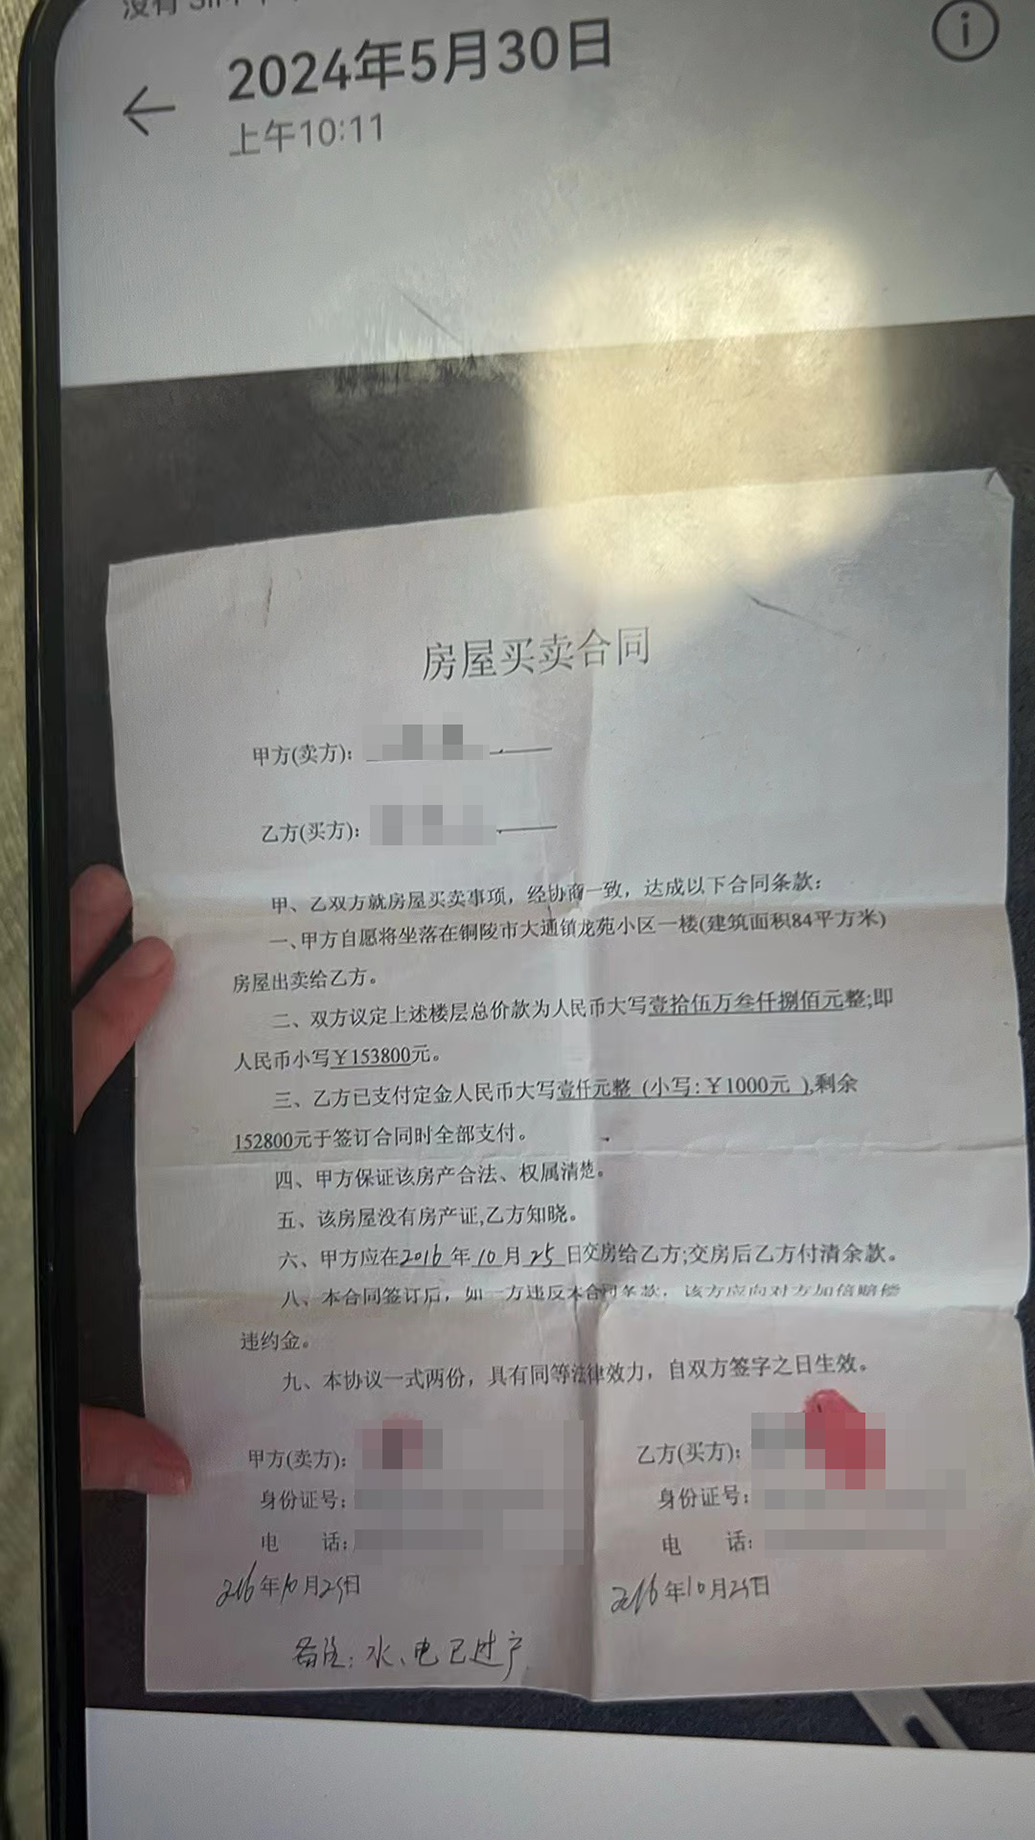 没有 SIM 卡
2024年5月30日
上午10:11
房屋买卖合同
甲方(卖方):
乙方(买方):
甲、乙双方就房屋买卖事项，经协商一致，达成以下合同条款:
一、甲方自愿将坐落在铜陵市大通镇龙苑小区一楼(建筑面积84平方米)
房屋出卖给乙方。
二、双方议定上述楼层总价款为人民币大写壹拾伍万叁仟捌佰元整;即
人民币小写￥153800元。
三、乙方已支付定金人民币大写壹仟元整 (小写:￥1000元 ),剩余
152800元于签订合同时全部支付。
四、甲方保证该房产合法、权属清楚。
五、该房屋没有房产证,乙方知晓。
六、甲方应在2016年10月25日交房给乙方;交房后乙方付清余款。
八、本合同签订后，如一方违反本合同条款，该方应向对方加倍赔偿
违约金。
九、本协议一式两份，具有同等法律效力，自双方签字之日生效。
甲方(卖方): 乙方(买方):
身份证号: 身份证号:
电 话: 电 话:
2016年10月25日 2016年10月25日
备注: 水、电已过户